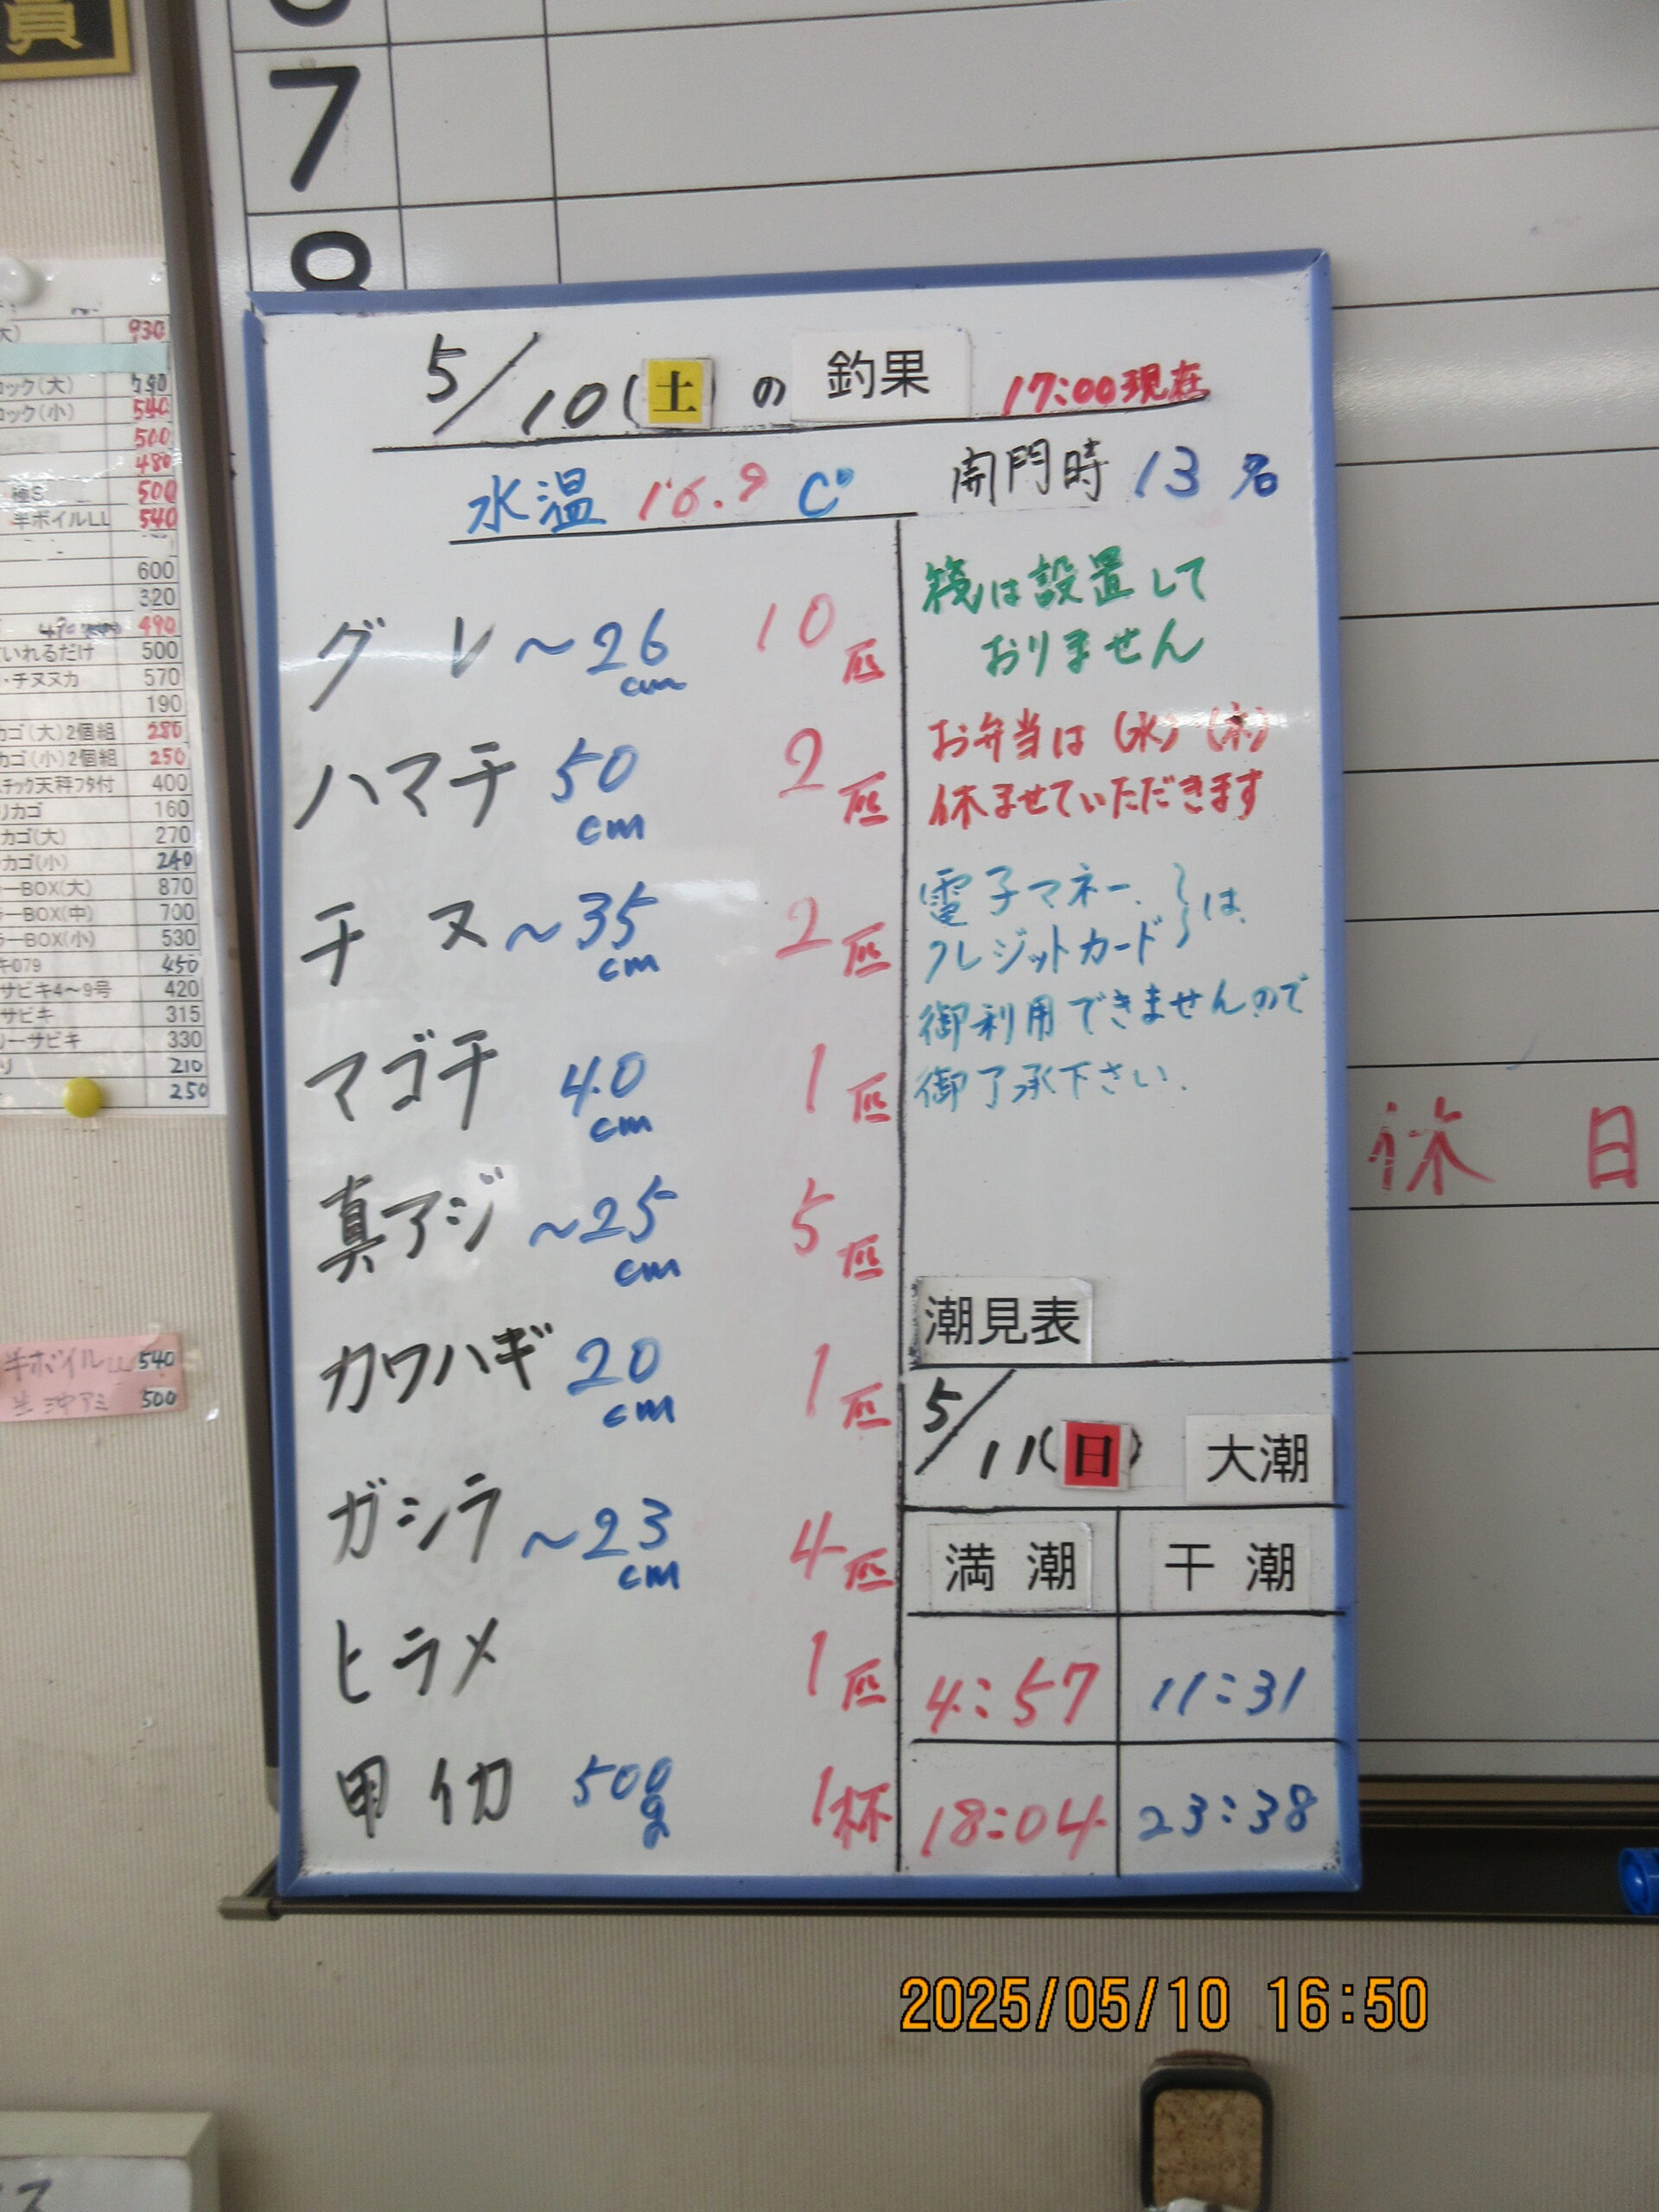 員
7
8
大) 930
ロック(大) 790
ロック(小) 540
500
480
極S 500
半ボイルLL 540
600
320
490
いれるだけ 500
・チヌヌカ 570
190
カゴ(大)2個組 280
カゴ(小)2個組 250
スチック天秤フタ付 400
リカゴ 160
カゴ(大) 270
カゴ(小) 240
ラーBOX(大) 870
ラーBOX(中) 700
ラーBOX(小) 530
キ079 450
サビキ4〜9号 420
サビキ 315
リーサビキ 330
リ 210
250
半ボイルLL 540
生沖アミ 500
5/10(土)の釣果 17:00現在
水温 16.9 C° 開門時 13名
グレ 〜26cm 10匹
ハマチ 50cm 2匹
チヌ 〜35cm 2匹
マゴチ 40cm 1匹
真アジ 〜25cm 5匹
カワハギ 20cm 1匹
ガシラ 〜23cm 4匹
ヒラメ 1匹
甲イカ 500g 1杯
筏は設置して
おりません
お弁当は(水)(木)
休ませていただきます
電子マネー、
クレジットカード}は
御利用できませんので
御了承下さい.
潮見表
5/11(日) 大潮
満潮 干潮
4:57 11:31
18:04 23:38
休日
2025/05/10 16:50